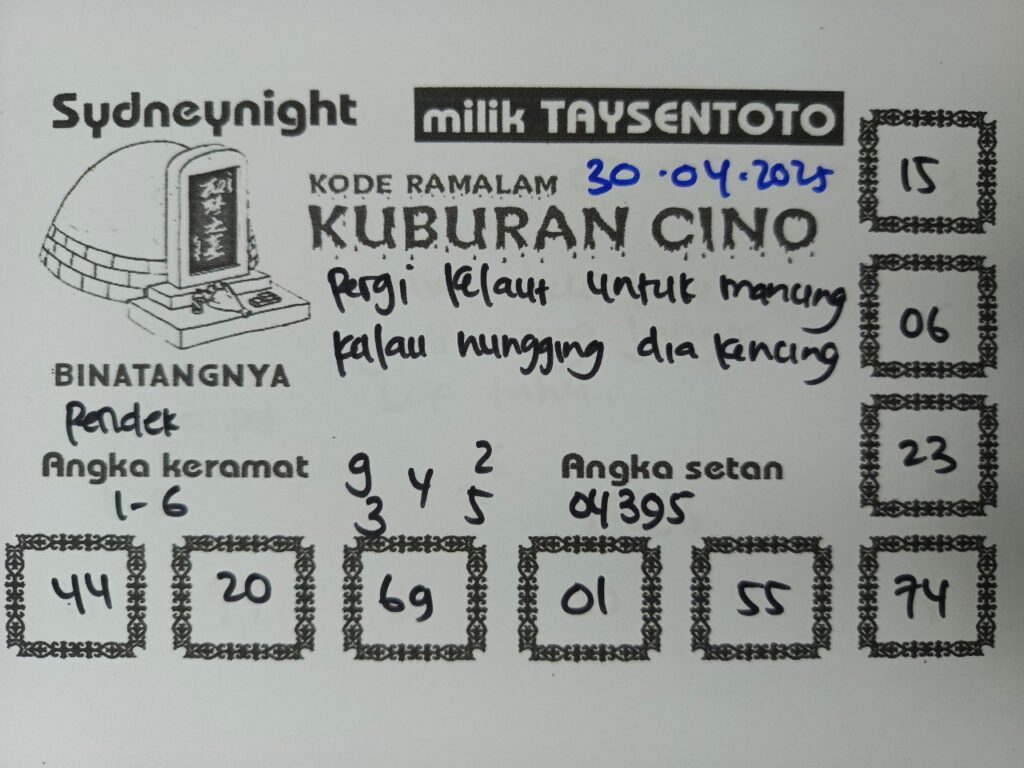 Sydneynight
milik TAYSENTOTO
KODE RAMALAM 30.04.2025
KUBURAN CINO
Pergi kelaut untuk mancing
kalau nungging dia kencing
BINATANGNYA
Pendek
Angka keramat
1-6
9 4 2
3 5
Angka setan
04395
15
06
23
44 20 69 01 55 74